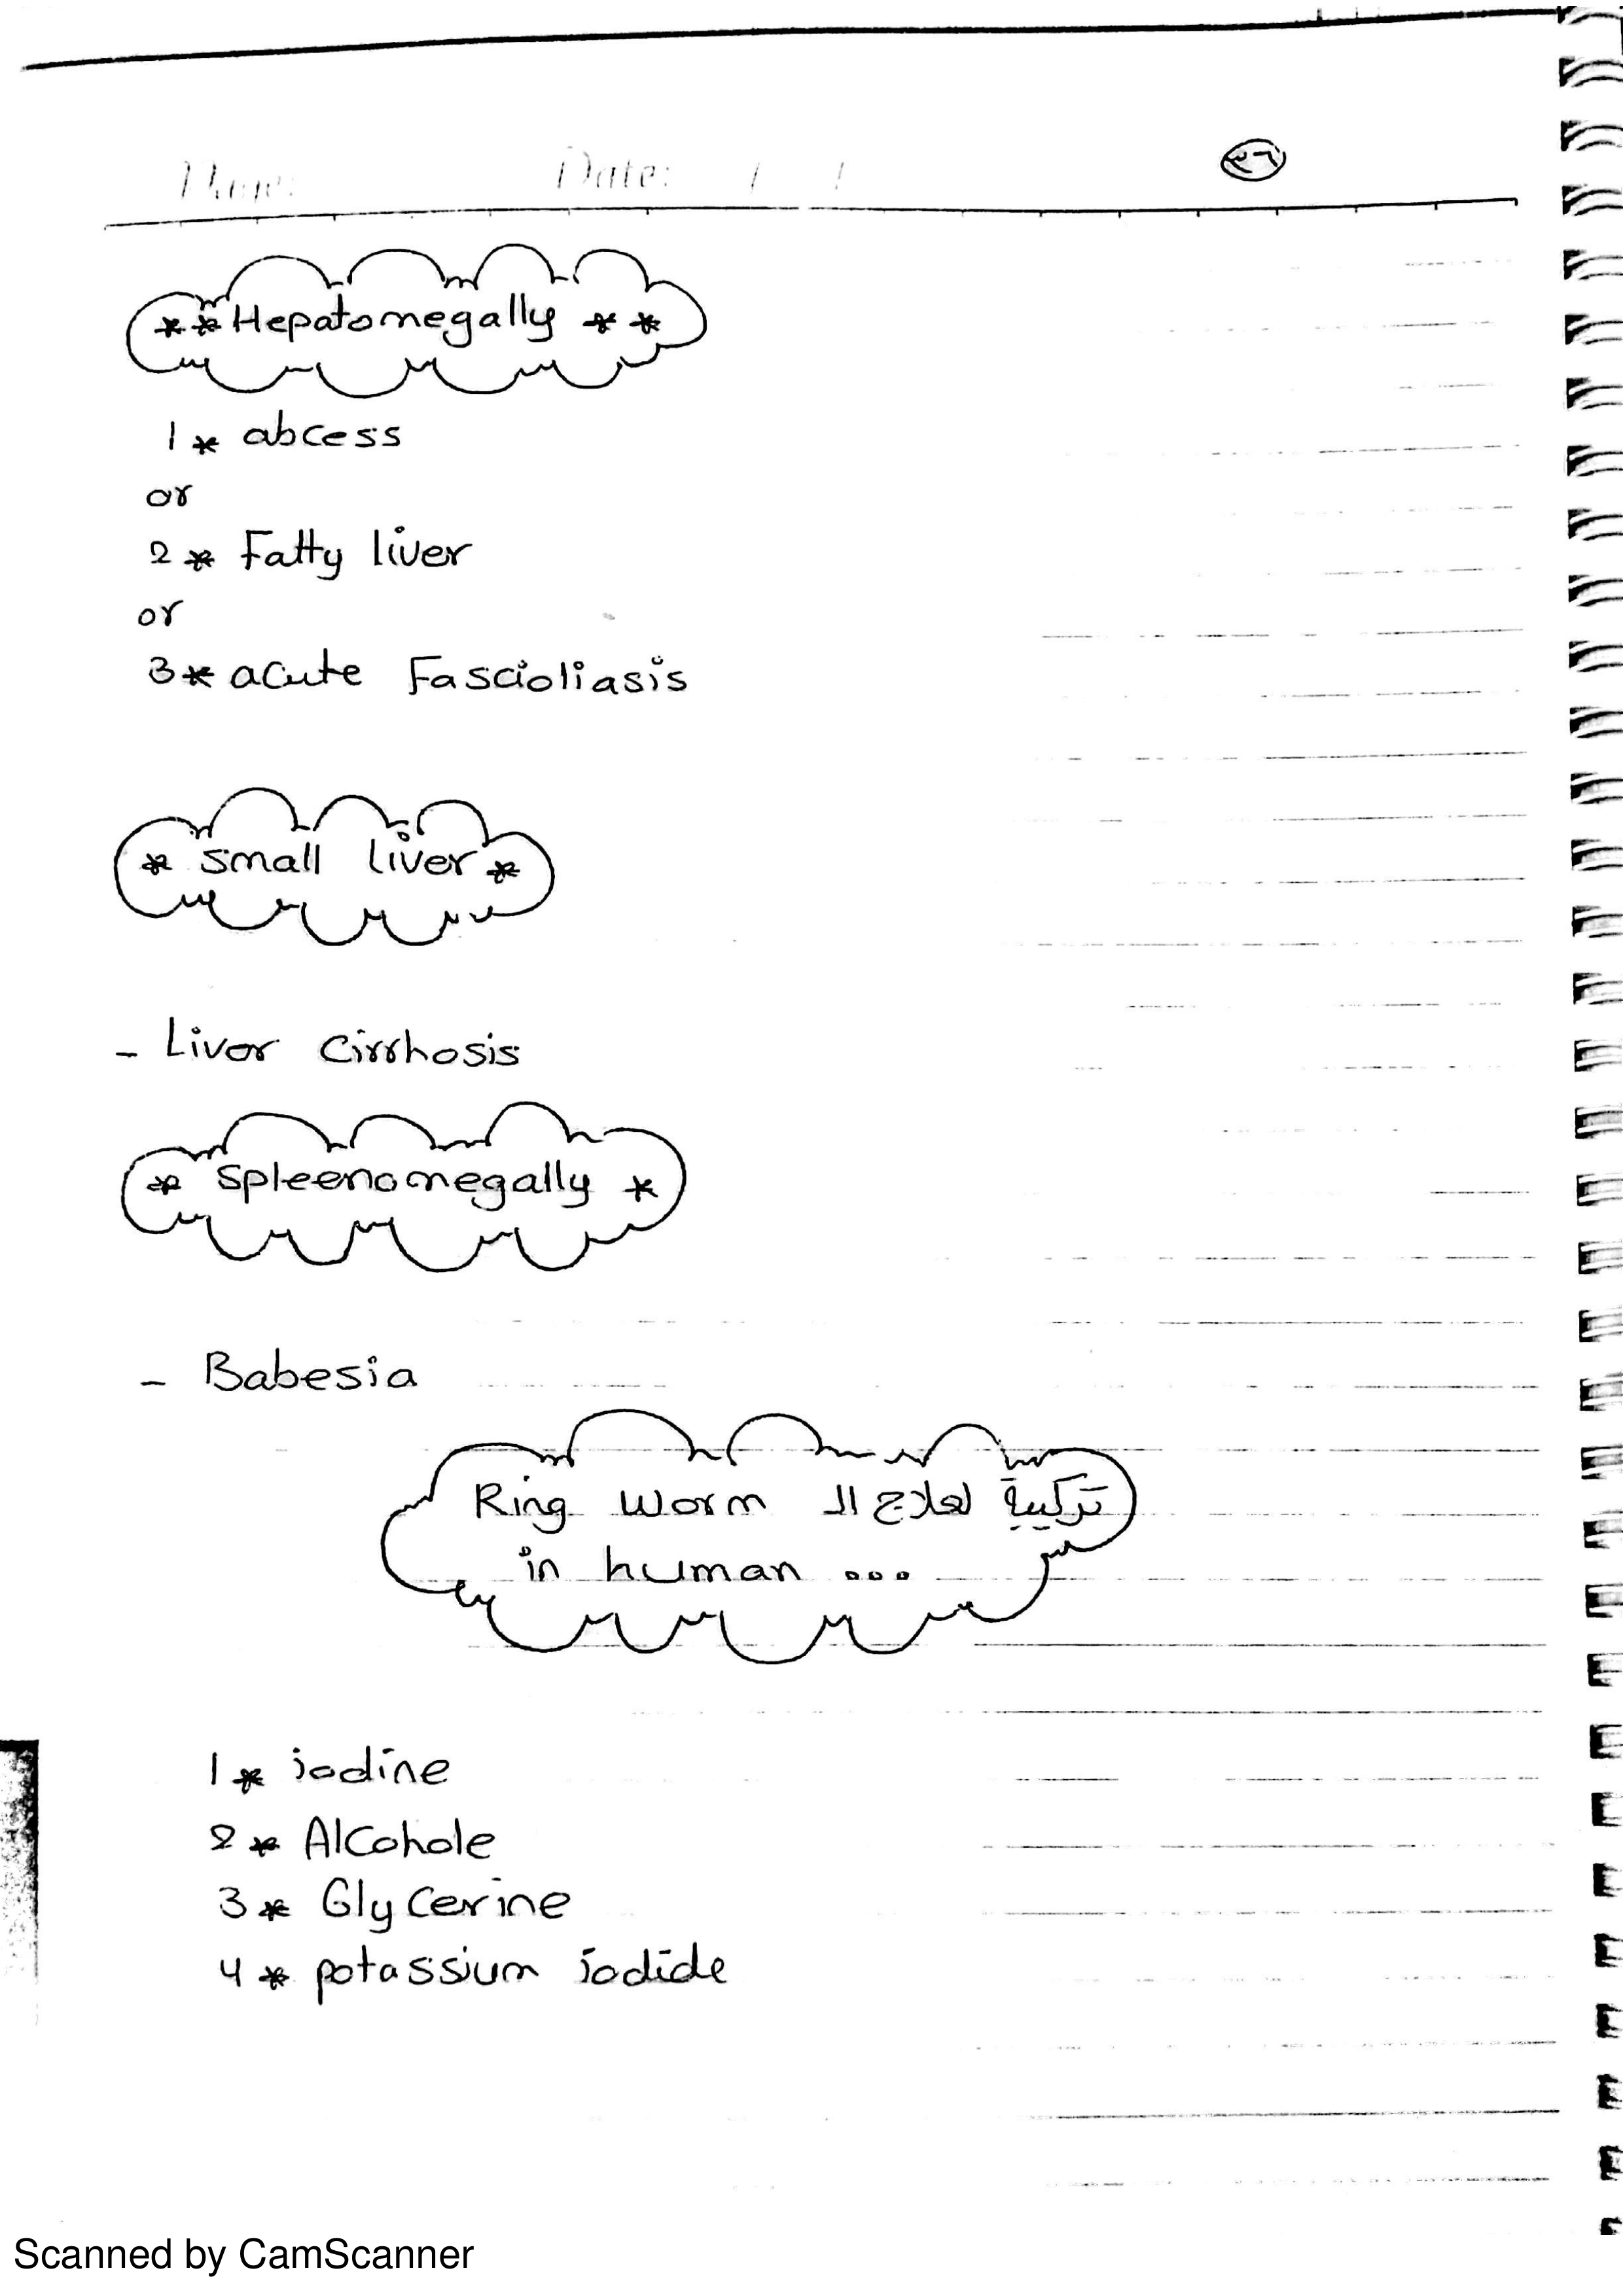 Date: / /
**Hepatomegally **
1* abcess
or
2* Fatty liver
or
3* acute Fascioliasis
* small liver *
- Liver Cirrhosis
* spleenomegally *
- Babesia
تركيبة لعلاج ال Ring Worm
in human ...
1* iodine
2* Alcohole
3* Glycerine
4* potassium iodide
Scanned by CamScanner